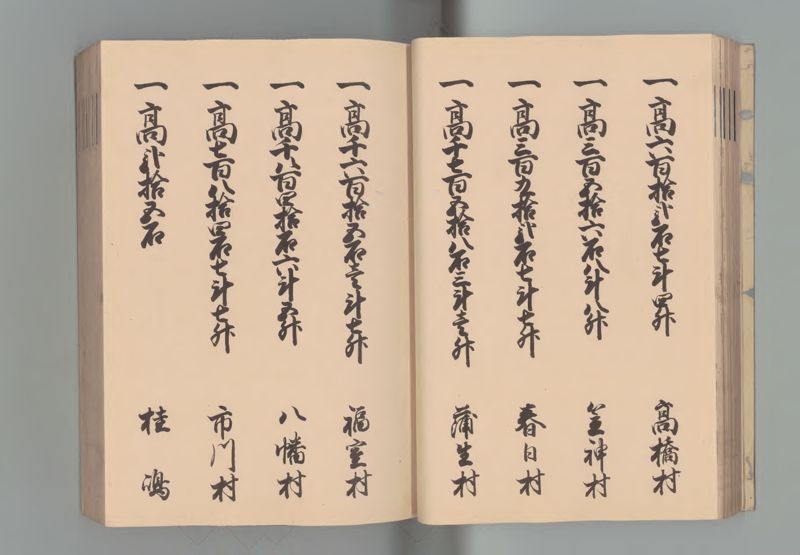 一高六百拾弐石七斗四升 高橋村
一高三百五拾六石八斗八升 笠神村
一高三百九拾弐石七斗七升 春日村
一高千七百五拾八石三斗壱升 蒲生村
一高千六百拾五石壱斗七升 福室村
一高千八百四拾石六斗五升 八幡村
一高七百八拾四石七斗七升 市川村
一高弐拾五石 桂嶋